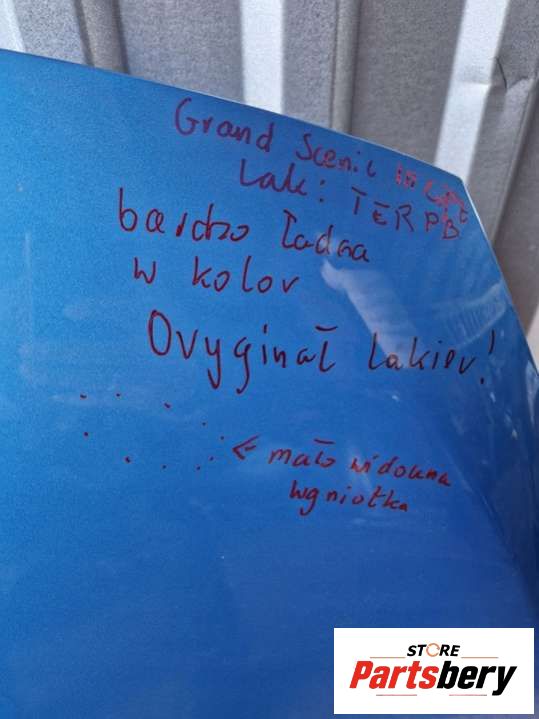 Grand Scenic III
Lak: TERPB
bardzo ładna
w kolor
Oryginał lakier!
← mało widoczna
wgniotka
STORE
Partsbery